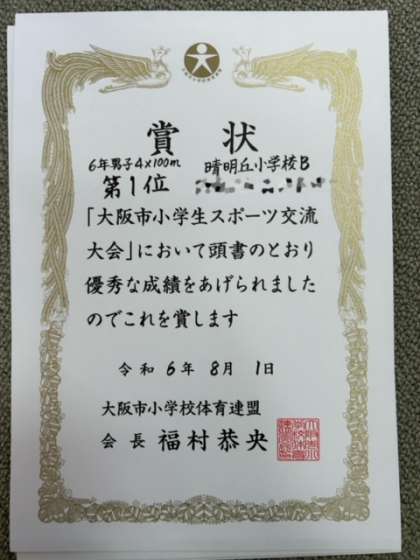 賞状
6年男子4×100m 晴明丘小学校B
第1位
「大阪市小学生スポーツ交流
大会」において頭書のとおり
優秀な成績をあげられました
のでこれを賞します
令和6年8月1日
大阪市小学校体育連盟
会長 福村恭央